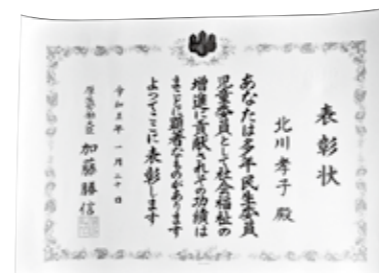 表彰状
北川孝子殿
あなたは多年民生委員
児童委員として社会福祉の
増進に貢献されその功績は
まことに顕著なものがあります
よってここに表彰します
令和三年一月二十日
厚生労働大臣 加藤勝信